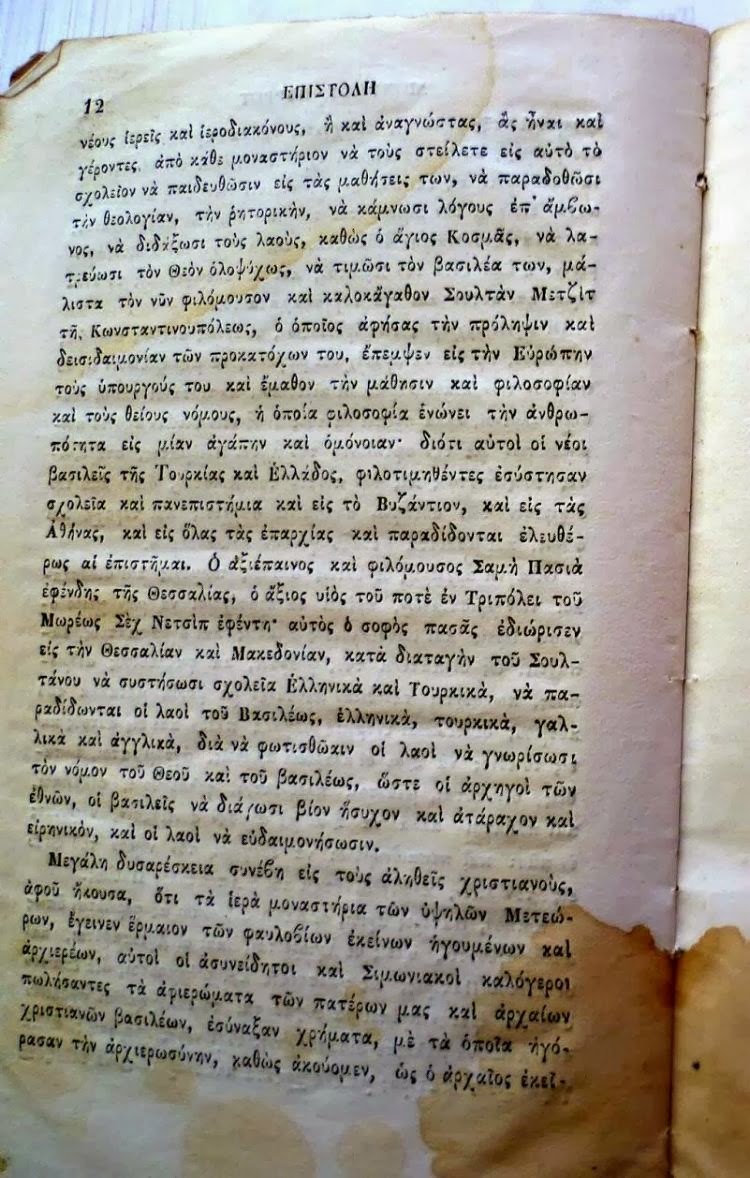 12
ΕΠΙΣΤΟΛΗ
νέους ἱερεῖς καὶ ἱεροδιακόνους, ἢ καὶ ἀναγνώστας, ἂς ἦναι καὶ
γέροντες, ἀπὸ κάθε μοναστήριον νὰ τοὺς στείλετε εἰς αὐτὸ τὸ
σχολεῖον νὰ παιδευθῶσιν εἰς τὰς μαθήσεις των, νὰ παραδοθῶσι
τὴν θεολογίαν, τὴν ῥητορικὴν, νὰ κάμνωσι λόγους ἐπ' ἄμβω-
νος, νὰ διδάξωσι τοὺς λαοὺς, καθὼς ὁ ἅγιος Κοσμᾶς, νὰ λα-
τρεύωσι τὸν Θεὸν ὁλοψύχως, νὰ τιμῶσι τὸν βασιλέα των, μά-
λιστα τὸν νῦν φιλόμουσον καὶ καλοκἄγαθον Σουλτὰν Μετζὶτ
τῆς Κωνσταντινουπόλεως, ὁ ὁποῖος ἀφήσας τὴν πρόληψιν καὶ
δεισιδαιμονίαν τῶν προκατόχων του, ἔπεμψεν εἰς τὴν Εὐρώπην
τοὺς ὑπουργούς του καὶ ἔμαθον τὴν μάθησιν καὶ φιλοσοφίαν
καὶ τοὺς θείους νόμους, ἡ ὁποία φιλοσοφία ἑνώνει τὴν ἀνθρω-
πότητα εἰς μίαν ἀγάπην καὶ ὁμόνοιαν· διότι αὐτοὶ οἱ νέοι
βασιλεῖς τῆς Τουρκίας καὶ Ἑλλάδος, φιλοτιμηθέντες ἐσύστησαν
σχολεῖα καὶ πανεπιστήμια καὶ εἰς τὸ Βυζάντιον, καὶ εἰς τὰς
Ἀθήνας, καὶ εἰς ὅλας τὰς ἐπαρχίας καὶ παραδίδονται ἐλευθέ-
ρως αἱ ἐπιστῆμαι. Ὁ ἀξιέπαινος καὶ φιλόμουσος Σαμὴ Πασιᾶ
ἐφένδης τῆς Θεσσαλίας, ὁ ἄξιος υἱὸς τοῦ ποτὲ ἐν Τριπόλει τοῦ
Μωρέως Σὲχ Νετσὶπ ἐφέντη· αὐτὸς ὁ σοφὸς πασᾶς ἐδιώρισεν
εἰς τὴν Θεσσαλίαν καὶ Μακεδονίαν, κατὰ διαταγὴν τοῦ Σουλ-
τάνου νὰ συστήσωσι σχολεῖα Ἑλληνικὰ καὶ Τουρκικὰ, νὰ πα-
ραδίδωνται οἱ λαοὶ τοῦ Βασιλέως, ἑλληνικὰ, τουρκικὰ, γαλ-
λικὰ καὶ ἀγγλικὰ, διὰ νὰ φωτισθῶσιν οἱ λαοὶ νὰ γνωρίσωσι
τὸν νόμον τοῦ Θεοῦ καὶ τοῦ βασιλέως, ὥστε οἱ ἀρχηγοὶ τῶν
ἐθνῶν, οἱ βασιλεῖς νὰ διάγωσι βίον ἥσυχον καὶ ἀτάραχον καὶ
εἰρηνικὸν, καὶ οἱ λαοὶ νὰ εὐδαιμονήσωσιν.
Μεγάλη δυσαρέσκεια συνέβη εἰς τοὺς ἀληθεῖς χριστιανοὺς,
ἀφοῦ ἤκουσα, ὅτι τὰ ἱερὰ μοναστήρια τῶν ὑψηλῶν Μετεώ-
ρων, ἔγεινεν ἕρμαιον τῶν φαυλοβίων ἐκείνων ἡγουμένων καὶ
ἀρχιερέων, αὐτοὶ οἱ ἀσυνείδητοι καὶ Σιμωνιακοὶ καλόγεροι
πωλήσαντες τὰ ἀφιερώματα τῶν πατέρων μας καὶ ἀρχαίων
χριστιανῶν βασιλέων, ἐσύναξαν χρήματα, μὲ τὰ ὁποῖα ἠγό-
ρασαν τὴν ἀρχιερωσύνην, καθὼς ἀκούομεν, ὡς ὁ ἀρχαῖος ἐκεῖ-